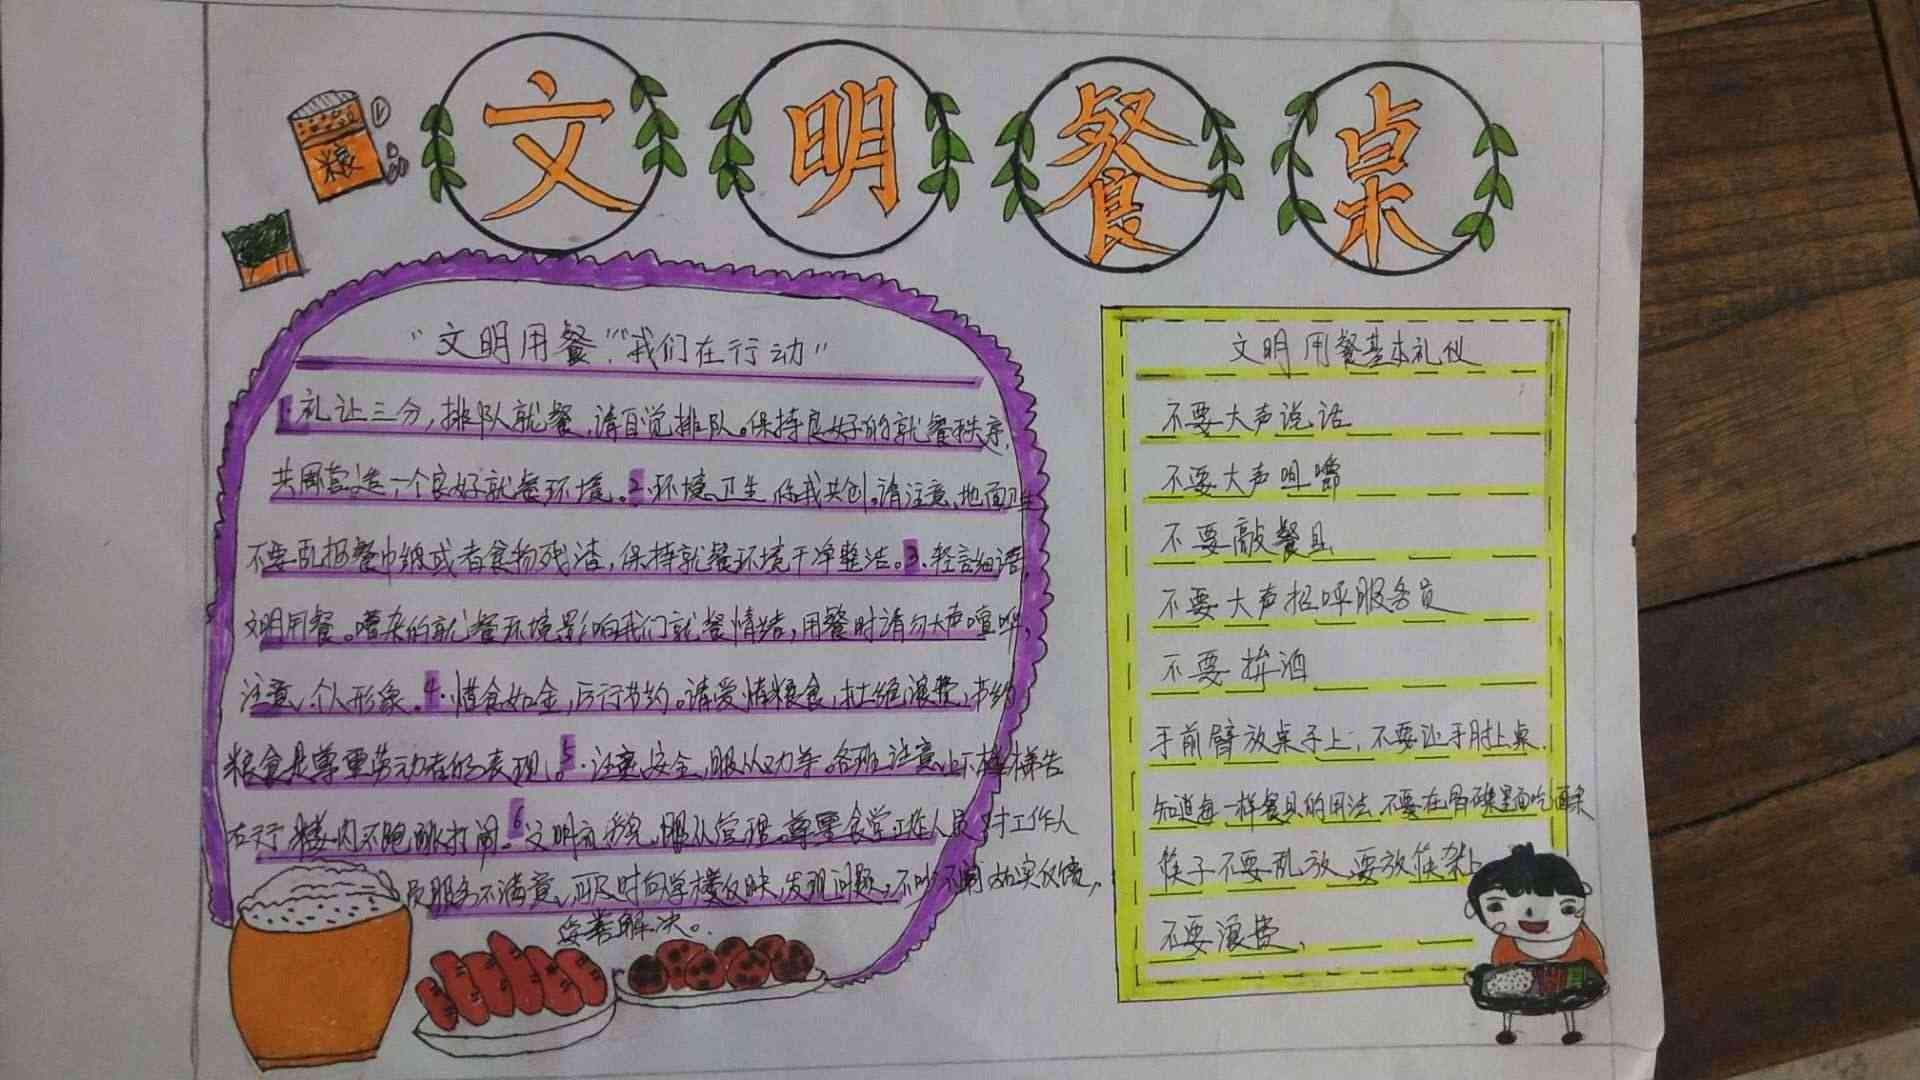 文明餐桌
粮
“文明用餐”“我们在行动”
1.礼让三分,排队就餐,请自觉排队。保持良好的就餐秩序,
共同营造一个良好就餐环境。2.环境卫生,你我共创。请注意地面卫生
不要乱扔餐巾纸或者食物残渣,保持就餐环境干净整洁。3.轻言细语,
文明用餐。嘈杂的就餐环境影响我们就餐情绪,用餐时请勿大声喧哗,
注意个人形象。4.惜食如金,厉行节约。请爱惜粮食,杜绝浪费,节约
粮食是尊重劳动者的表现。5.注意安全,服从
各班注意上下楼梯告
右行,楼内不跑跳打闹。6.文明
服从管理。尊重食堂工作人员,对工作人
员服务不满意,可及时向学校反映,发现问题,不吵不闹,如实反馈,
妥善解决。
文明用餐基本礼仪
不要大声说话
不要大声咀嚼
不要敲餐具
不要大声招呼服务员
不要拚酒
手前臂放桌子上,不要让手肘上桌.
知道每一样餐具的用法,不要在骨碟里面吃
筷子不要乱放,要放筷架上
不要浪费,